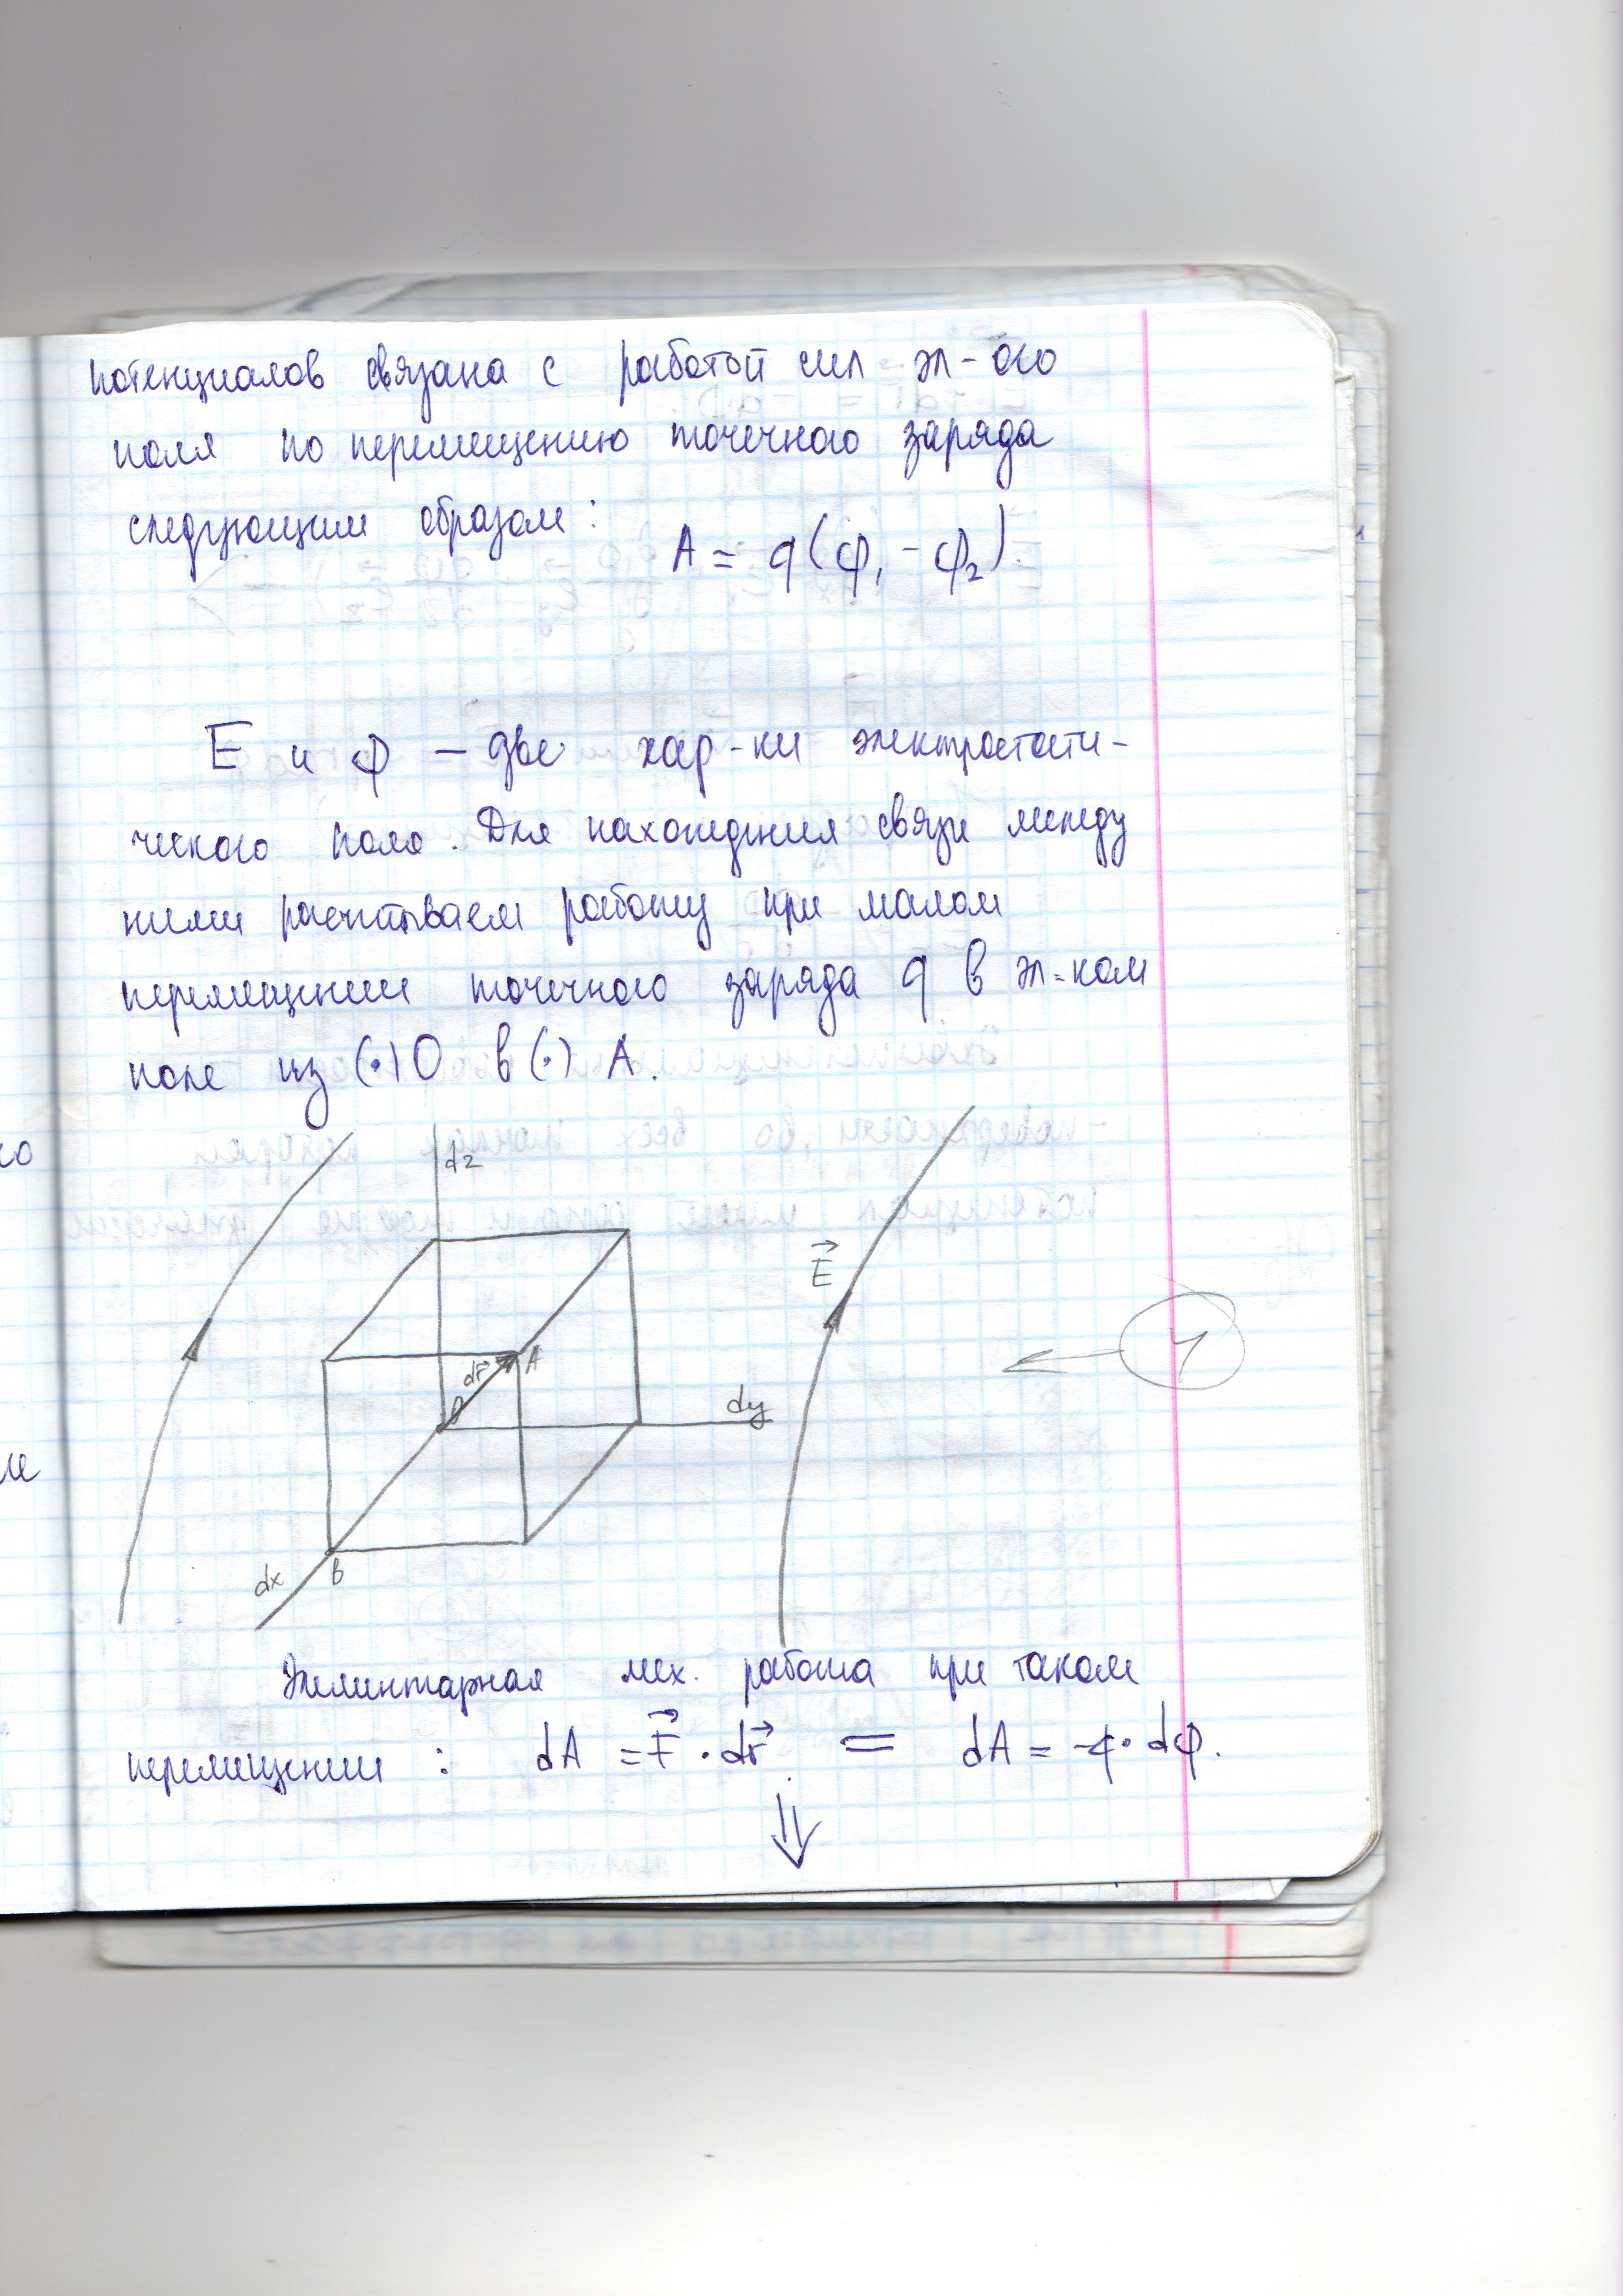 потенциалов связана с работой сил эл-ого
поля по перемещению точечного заряда
следующим образом:
A = q(φ₁ - φ₂).
E и φ — две хар-ки электростати-
ческого поля. Для нахождения связи между
ними расчитываем работу при малом
перемещении точечного заряда q в эл-ком
поле из (·) O в (·) A.
dz
E⃗
4
dr⃗ A
O
dy
dx B
Элементарная мех. работа при таком
перемещении : dA = F⃗ · dr⃗ = dA = -q · dφ.
⇓